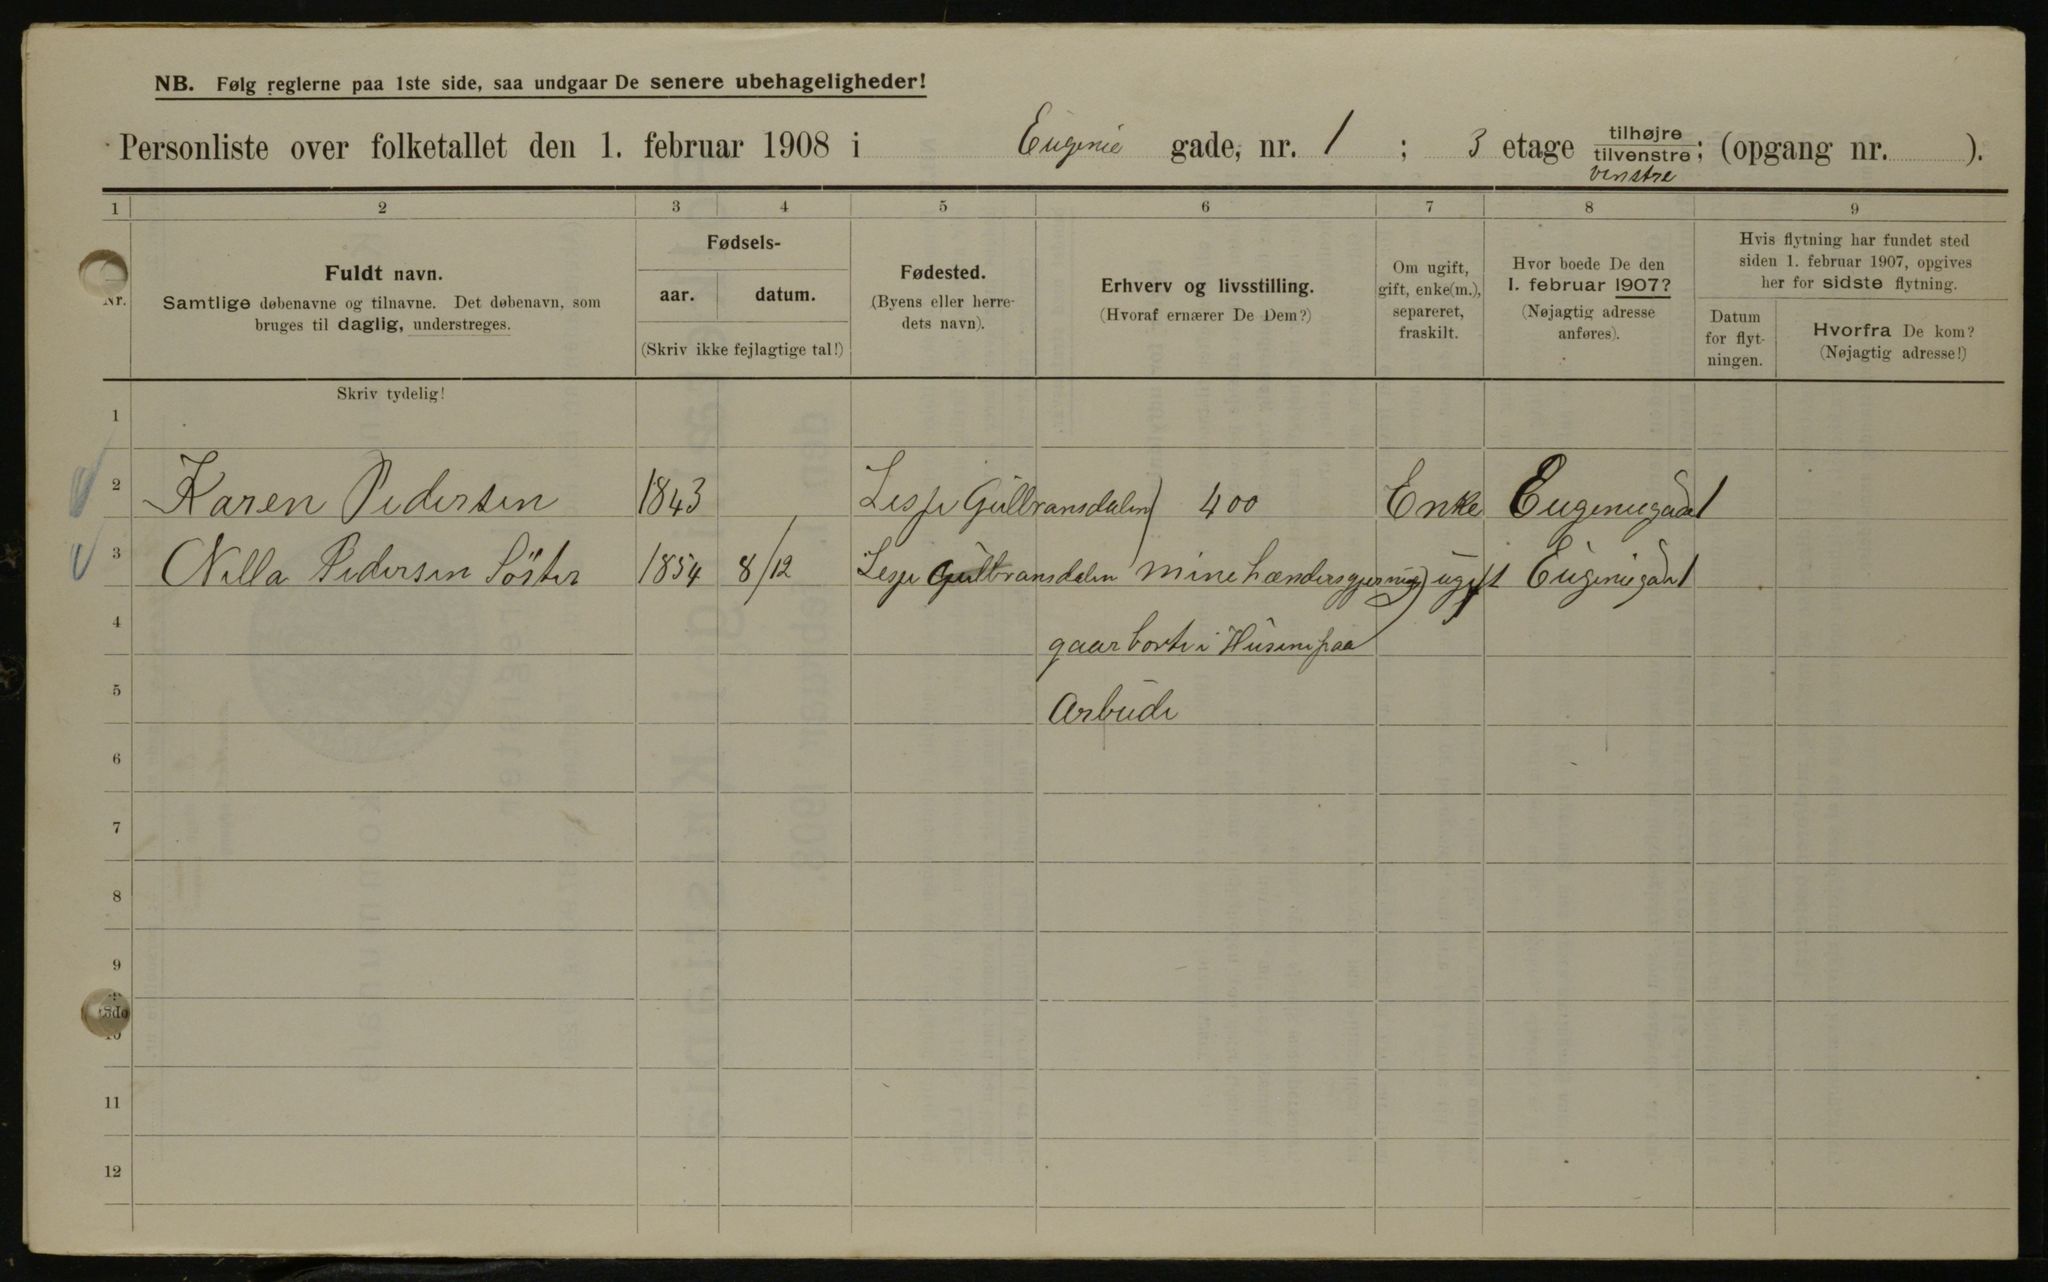 NB. Følg reglerne paa 1ste side, saa undgaar De senere ubehageligheder!
Personliste over folketallet den 1. februar 1908 i Eugenie gade, nr. 1 ; 3 etage tilhøjre/tilvenstre; (opgang nr. ).
venstre
1 2 3 4 5 6 7 8 9
Nr.
Fuldt navn.
Samtlige døbenavne og tilnavne. Det døbenavn, som
bruges til daglig, understreges.
Fødsels-
aar. datum.
(Skriv ikke fejlagtige tal!)
Fødested.
(Byens eller herre-
dets navn).
Erhverv og livsstilling.
(Hvoraf ernærer De Dem?)
Om ugift,
gift, enke(m.),
separeret,
fraskilt.
Hvor boede De den
1. februar 1907?
(Nøjagtig adresse
anføres).
Hvis flytning har fundet sted
siden 1. februar 1907, opgives
her for sidste flytning.
Datum
for flyt-
ningen.
Hvorfra De kom?
(Nøjagtig adresse!)
Skriv tydelig!
1
2 Karen Pedersen 1843 Lesje Gulbransdalen) 400 Enke Eugeniegade 1
3 Nilla Pedersen Söster 1854 8/12 Lesje Gulbransdalen mine hændersgjerning) ugift Eugeniegade 1
4 gaar borte i Husene paa
5 Arbeide
6
7
8
9
10
11
12